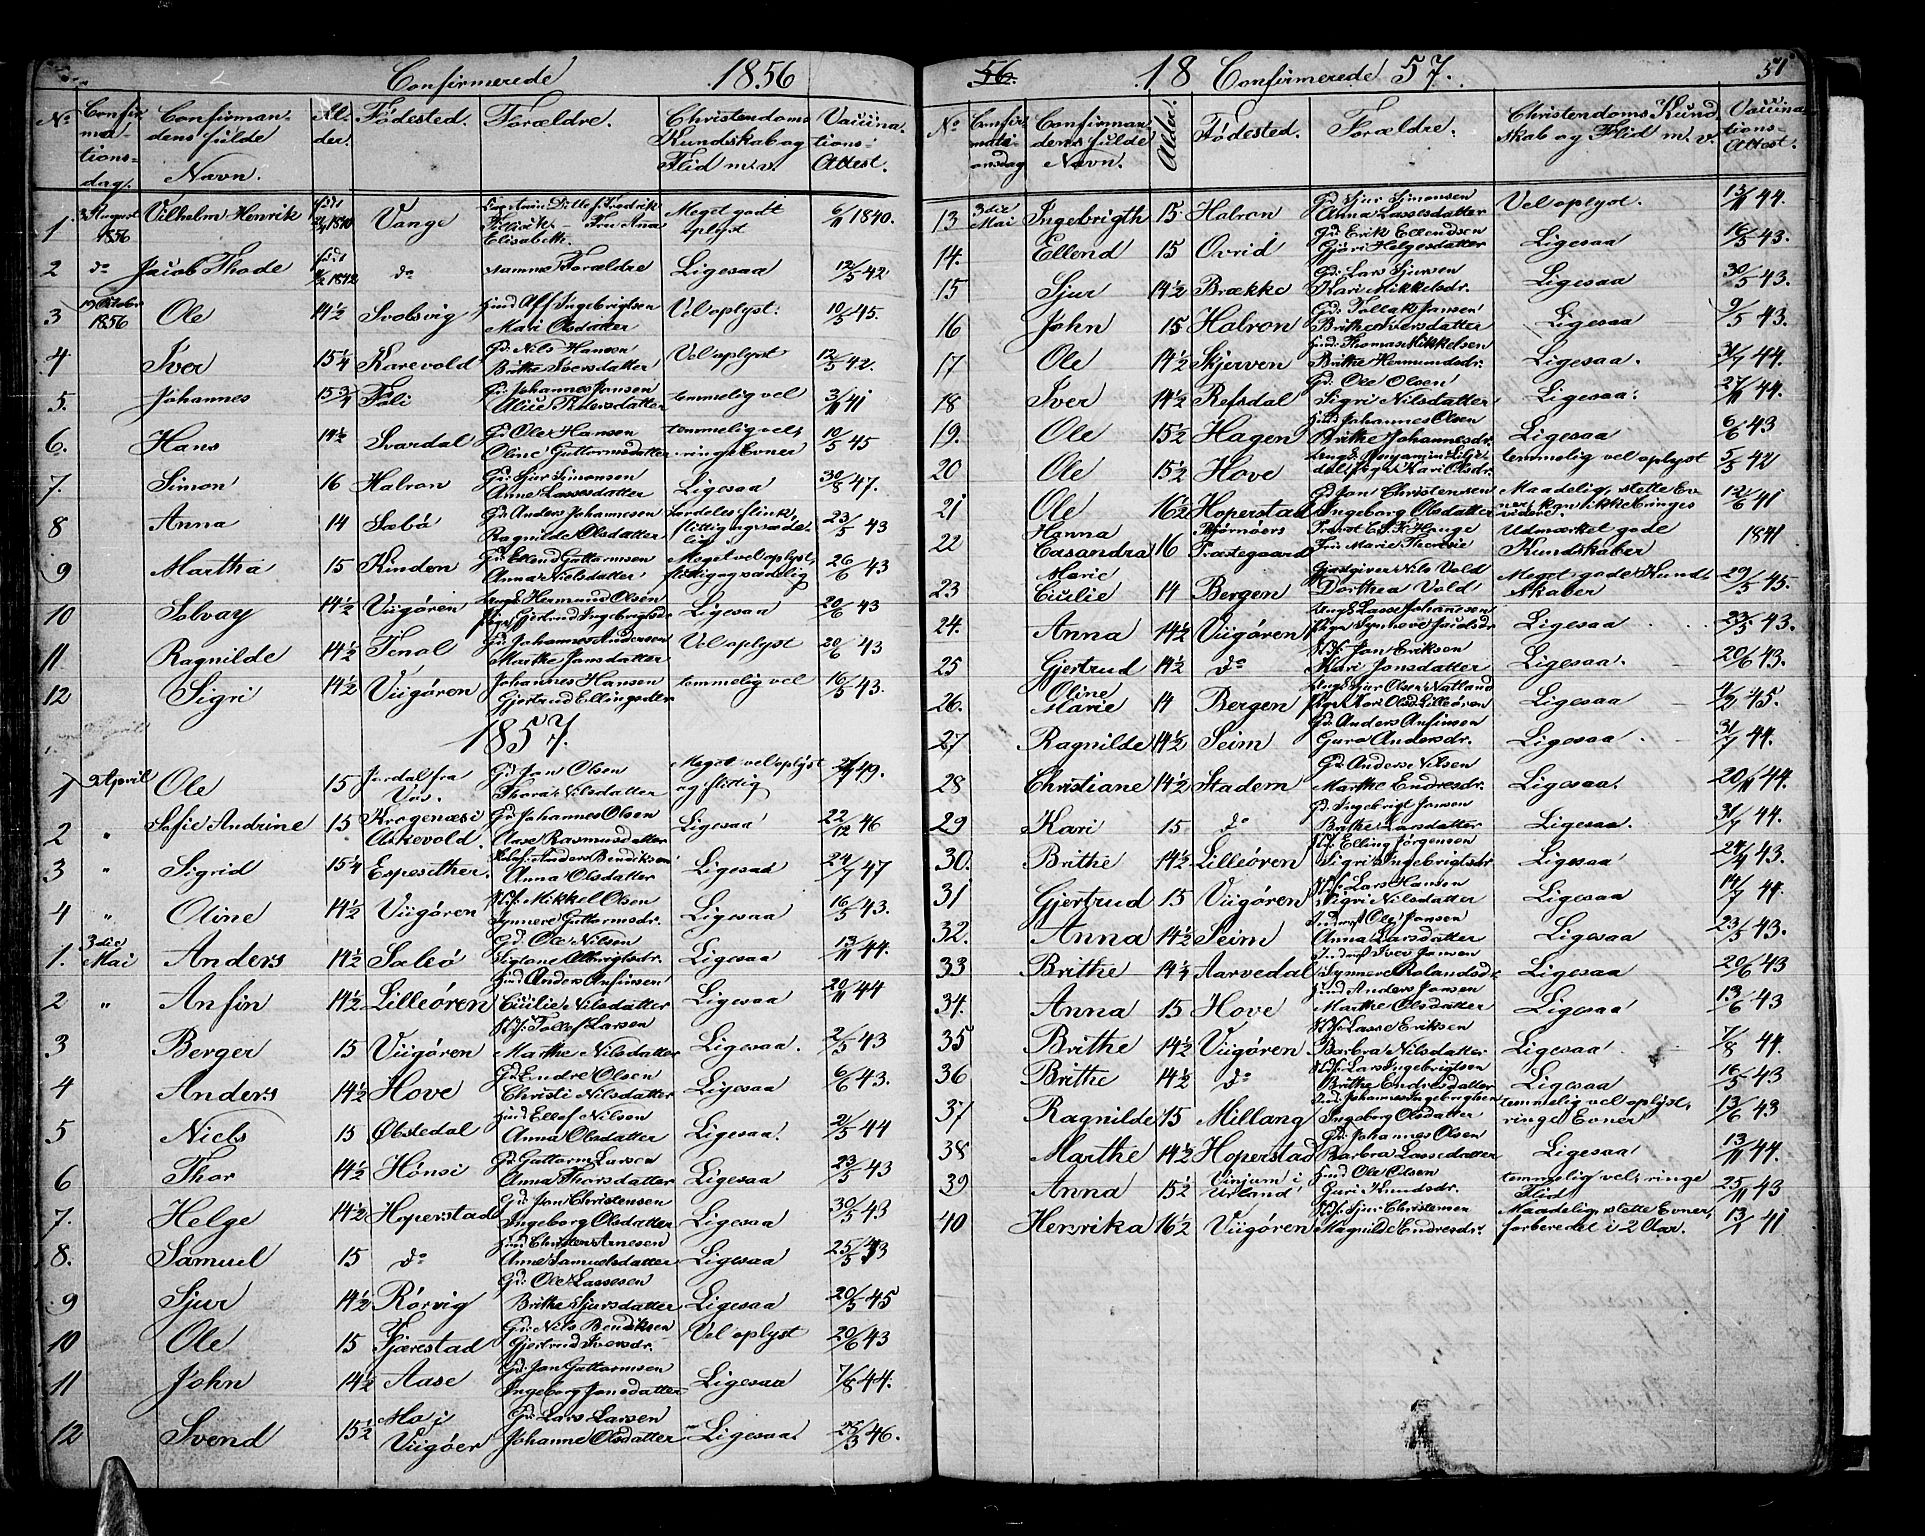 Confirmerede 1856
No Confirmationsdag. Confirmandens fulde Navn. Alder. Fødested. Forældre. Christendoms Kundskab og Flid m.v. Vaccinations-Attest.
1 3 August 1856 Vilhelm Henrik 1840 Vange Fru Ana Elisabeth. Meget godt oplyst 6/11 1840.
2 do Jacob Thode 1842 do samme Forældre Ligesaa 12/5 42
3 19 October 1856 Ole 14½ Svolsvig Ingebrigtsen Mari Olsdatter Vel oplyst. 10/5 45.
4 Iver 15¼ Karevold Gd. Nils Hansen Brithe Iversdatter Vel oplyst 12/5 42.
5. Johannes 15¾ Foli Gd. Johannes Jansen temmelig vel 3/11 41
6. Hans 14½ Svardal Gd. Ole Hansen Oline Guttormsdatter temmelig vel, ringe Evner 10/5 45
7. Simon 16 Halron Gd. Sjur Simonsen Anne Lassesdatter Ligesaa 30/8 47.
8 Anna 14 Sæbö Gd. Anders Johannesen Ragnilde Olsdatter særdeles flink, flittig og sædelig 23/5 43
9 Martha 15 Kinden Gd. Ellend Guttormsen Anna Nielsdatter Meget vel oplyst, flittig og sædelig 26/6 43
10 Solvay 14½ Viigören Ungk. Hermund Olsen Pige Gjertrud Ingebrigtsdr Ligesaa 20/6 43
11 Ragnilde 14½ Fenol Gd. Johannes Andersen Marthe Jansdatter Vel oplyst 20/6 43
12 Sigri 14½ Viigören Johannes Hansen Gjertrud Ellingsdtr temmelig vel 16/5 43.
1857.
1 3 April Ole 15 Jordal fra Vos. Gd. Jan Olsen Thora Nilsdatter Meget vel oplyst og flittig 49.
2 " Sofie Andrine 15 Krogenæs i Askevold. Gd. Johannes Olsen Aase Rasmusdatter Ligesaa 22/12 46
3 " Sigrid 15¼ Espesether. Anders Bendiksen Anna Olsdatter Ligesaa 24/7 47
4 " Oline 14½ Viigören Hsf. Mikkel Olsen Synneve Guttormsdr. Ligesaa 16/5 43.
1. 3die Mai Anders 14½ Sæbö Gd. Ole Nilsen Ligesaa 13/11 44.
2 " Anfin 14½ Lilleören Huusd Anders Anfinsen Cicilie Nilsdatter Ligesaa 20/11 44
3 Berger 15 Viigören Hsf. Tollef Larsen Marthe Nilsdatter Ligesaa. 2/5 43
4 Anders 14½ Hove Gd. Endre Olsen Christi Nilsdatter Ligesaa 6/6 43.
5 Niels 15 Øvstedal Huusd Ellef Nilsen Anna Olsdatter Ligesaa. 2/5 44
6 Thor 14½ Hönsi Gd. Guttorm Larsen Anna Thorsdatter Ligesaa 23/5 43
7. Helge 14½ Hoperstad Gd. Jan Christensen Ingeborg Olsdatter Ligesaa 30/5 43
8. Samuel 15 do Huusd Christen Arnesen Anne Samuelsdatter Ligesaa 25/5 43
9 Sjur 14½ Rörvig Gd. Ole Lassesen Brithe Sjursdatter Ligesaa 20/5 45
10 Ole 15 Fjærestad Gd. Nils Bendiksen Gjertrud Iversdr. Vel oplyst 20/6 43
11 John 14½ Aase Gd. Jan Guttormsen Ingeborg Jansdatter Ligesaa 7/8 44.
12 Svend 15½ Mo i Viigöer Gd. Lars Larsen Johanne Olsdatter Ligesaa. 25/3 46.
56. 18 Confirmerede 57. 51
No Confirmationsdag Confirmandens fulde Navn. Alder. Födested. Forældre. Christendoms Kundskab og Flid m.v. Vaccinations-Attest.
13 3die Mai Ingebrigth 15 Halron Gd. Sjur Simonsen Anna Lassesdatter Vel oplyst. 13/11 44.
14. Ellend 15 Ovrid Gd. Erik Ellendsen Gjøri Helgesdatter Ligesaa 16/5 43.
15 Sjur 14½ Brække Gd. Lars Sjursen Kari Mikkelsdr. Ligesaa 30/5 43.
16 John 15 Halron Gd. Tollak Jansen Brithe Iversdatter Ligesaa 9/5 43.
17 Ole 14½ Skjerven Huusd. Thomas Mikkelsen Brithe Hermundsdr. Ligesaa. 31/7 44.
18 Iver 14½ Refsdal Gd. Ole Olsen Sigri Nilsdatter Ligesaa. 27/11 44.
19. Ole 15½ Hagen Huusd Johannes Olsen Brithe Johannesdr. Ligesaa 6/6 43
20 Ole 15½ Hove Pige Kari Olsdr. temmelig vel oplyst 5/5 42
21 Ole 16½ Hoperstad Gd Jan Christensen Ingeborg Olsdatter Maadelig, slette Evner, kan ikke bringes videre. 12/6 41
22 Hanna Casandra 16 Præstegaard Provst Fru Marie Theresie Udmærket gode Kundskaber 1841
23 Marie Cicilie 14 Bergen Gjæstgiver Nils Vold Dorthea Vold Meget gode Kundskaber 29/5 45.
24. Anna 14½ Viigören Ungk. Lasse Johannesen Pige Synneve Ligesaa 43.
25 Gjertrud 14½ do Hsf. Jan Eriksen Kari Jonsdatter Ligesaa. 20/6 43.
26. Oline Marie 14 Bergen Ungk. Sjur Olsen Natland Pige Kari Olsd. Lilleören Ligesaa 45.
27 Ragnilde 14½ Seim Gd. Anders Anfinsen Guro Andersdr. Ligesaa 31/7 44.
28 Christiane 14½ Stadem Gd. Anders Nilsen Marthe Endresdr. Ligesaa 20/11 44.
29 Kari 15 do Gd. Ingebrigt Jansen Brithe Larsdatter Ligesaa. 31/7 44.
30. Brithe 14½ Lilleören Hsf. Elling Jørgensen Sigri Ingebrigtsdr Ligesaa 43.
31 Gjertrud 15 Viigören Hsf. Lars Hansen Sigri Nilsdatter Ligesaa 14/7 44.
32. Anna 14½ Seim Ole Jansen Anna Larsdatter Ligesaa 23/5 43.
33 Brithe 14½ Aarvedal Iver Jansen Synneve Rolandsdr Ligesaa 20/6 43
34. Anna 15 Hove Huusd Anders Jansen Marthe Olsdatter Ligesaa 13/6 43
35 Brithe 14½ Viigören Hsf. Lasse Eriksen Barbra Nilsdatter Ligesaa 7/8 44.
36 Brithe 14½ do Hsf. Lars Ingebrigtsen Brithe Endresdatter Ligesaa 16/5 43
37 Ragnilde 15 Millang Johannes Ingebrigtsen Ingeborg Olsdatter temmelig vel oplyst, ringe Evner 13/6 43
38 Marthe 14½ Hoperstad Gd. Johannes Olsen Barbra Lassedatter Ligesaa 13/11 44.
39 Anna 15½ Vinjum i Urland Huusd Ole Olsen Guri Knudsdr. temmelig vel, ringe Flid 25/11 43
40 Henrika 16½ Viigören Hsf. Sjur Christensen Magnilde Endresdr. Maadelig, slette Evner, forberedet i 2 Aar. 41